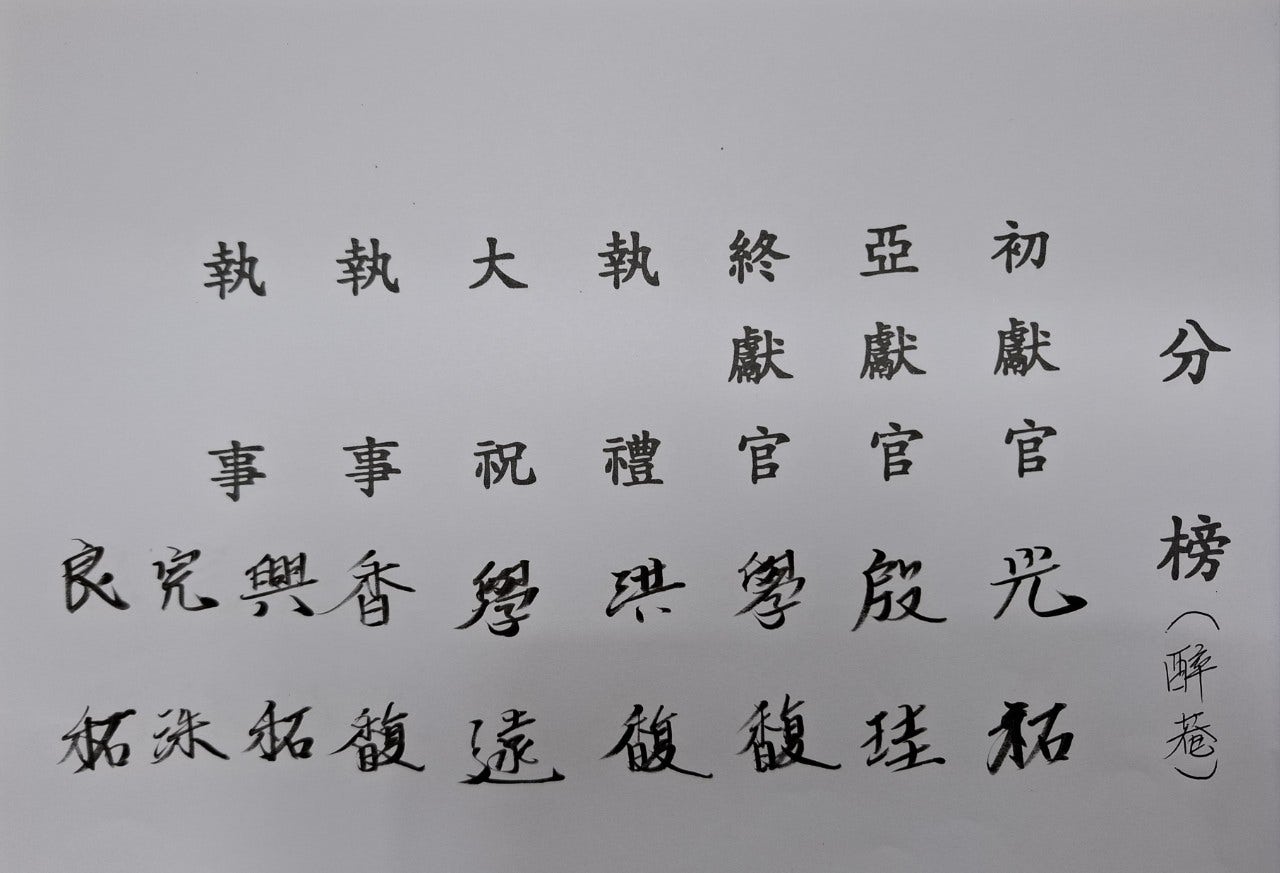 分榜(醉菴)
初獻官 光祏
亞獻官 殷珪
終獻官 學馥
執禮 洪馥
大祝 學遠
執事 香馥
執事 興祏
完洙
良祏